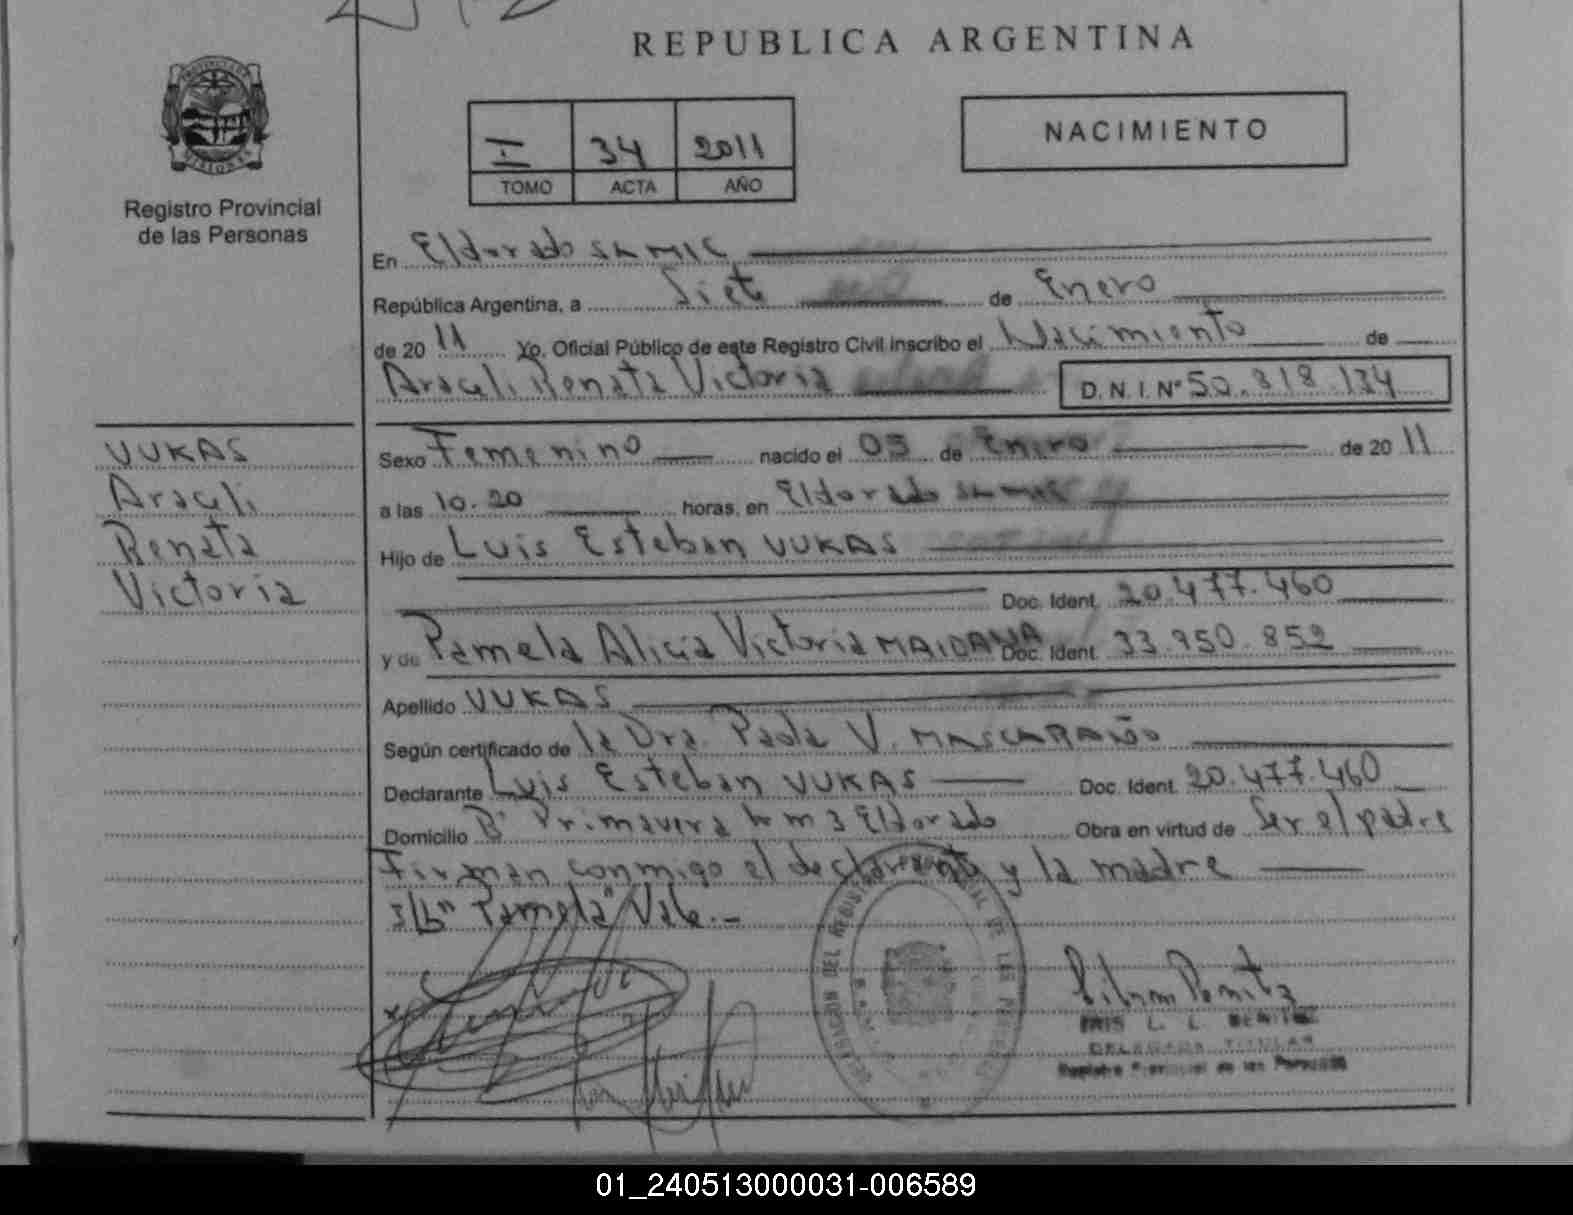 REPUBLICA ARGENTINA
PROVINCIA DE
MISIONES
I 34 2011
TOMO ACTA AÑO
NACIMIENTO
Registro Provincial
de las Personas
En Eldorado SA MIC
República Argentina, a Siete de Enero
de 20 11 Yo, Oficial Público de este Registro Civil inscribo el Nacimiento de
Araceli Renata Victoria D. N. I. Nº 50.818.134
VUKAS
Araceli
Renata
Victoria
Sexo Femenino nacido el 05 de Enero de 20 11
a las 10.20 horas, en Eldorado SA MIC
Hijo de Luis Esteban VUKAS
Doc. Ident. 20.477.460
y de Pamela Alicia Victoria MAIDANA Doc. Ident. 33.950.852
Apellido VUKAS
Según certificado de la Dra. Paola V. MASCARAÑO
Declarante Luis Esteban VUKAS Doc. Ident. 20.477.460
Domicilio Bº Primavera km 3 Eldorado Obra en virtud de Ser el padre
Firman conmigo el declarante y la madre
S/bº "Pamela" Vale.-
IRIS L. L. BENITEZ
DELEGADA TITULAR
Registro Provincial de las Personas
01_240513000031-006589